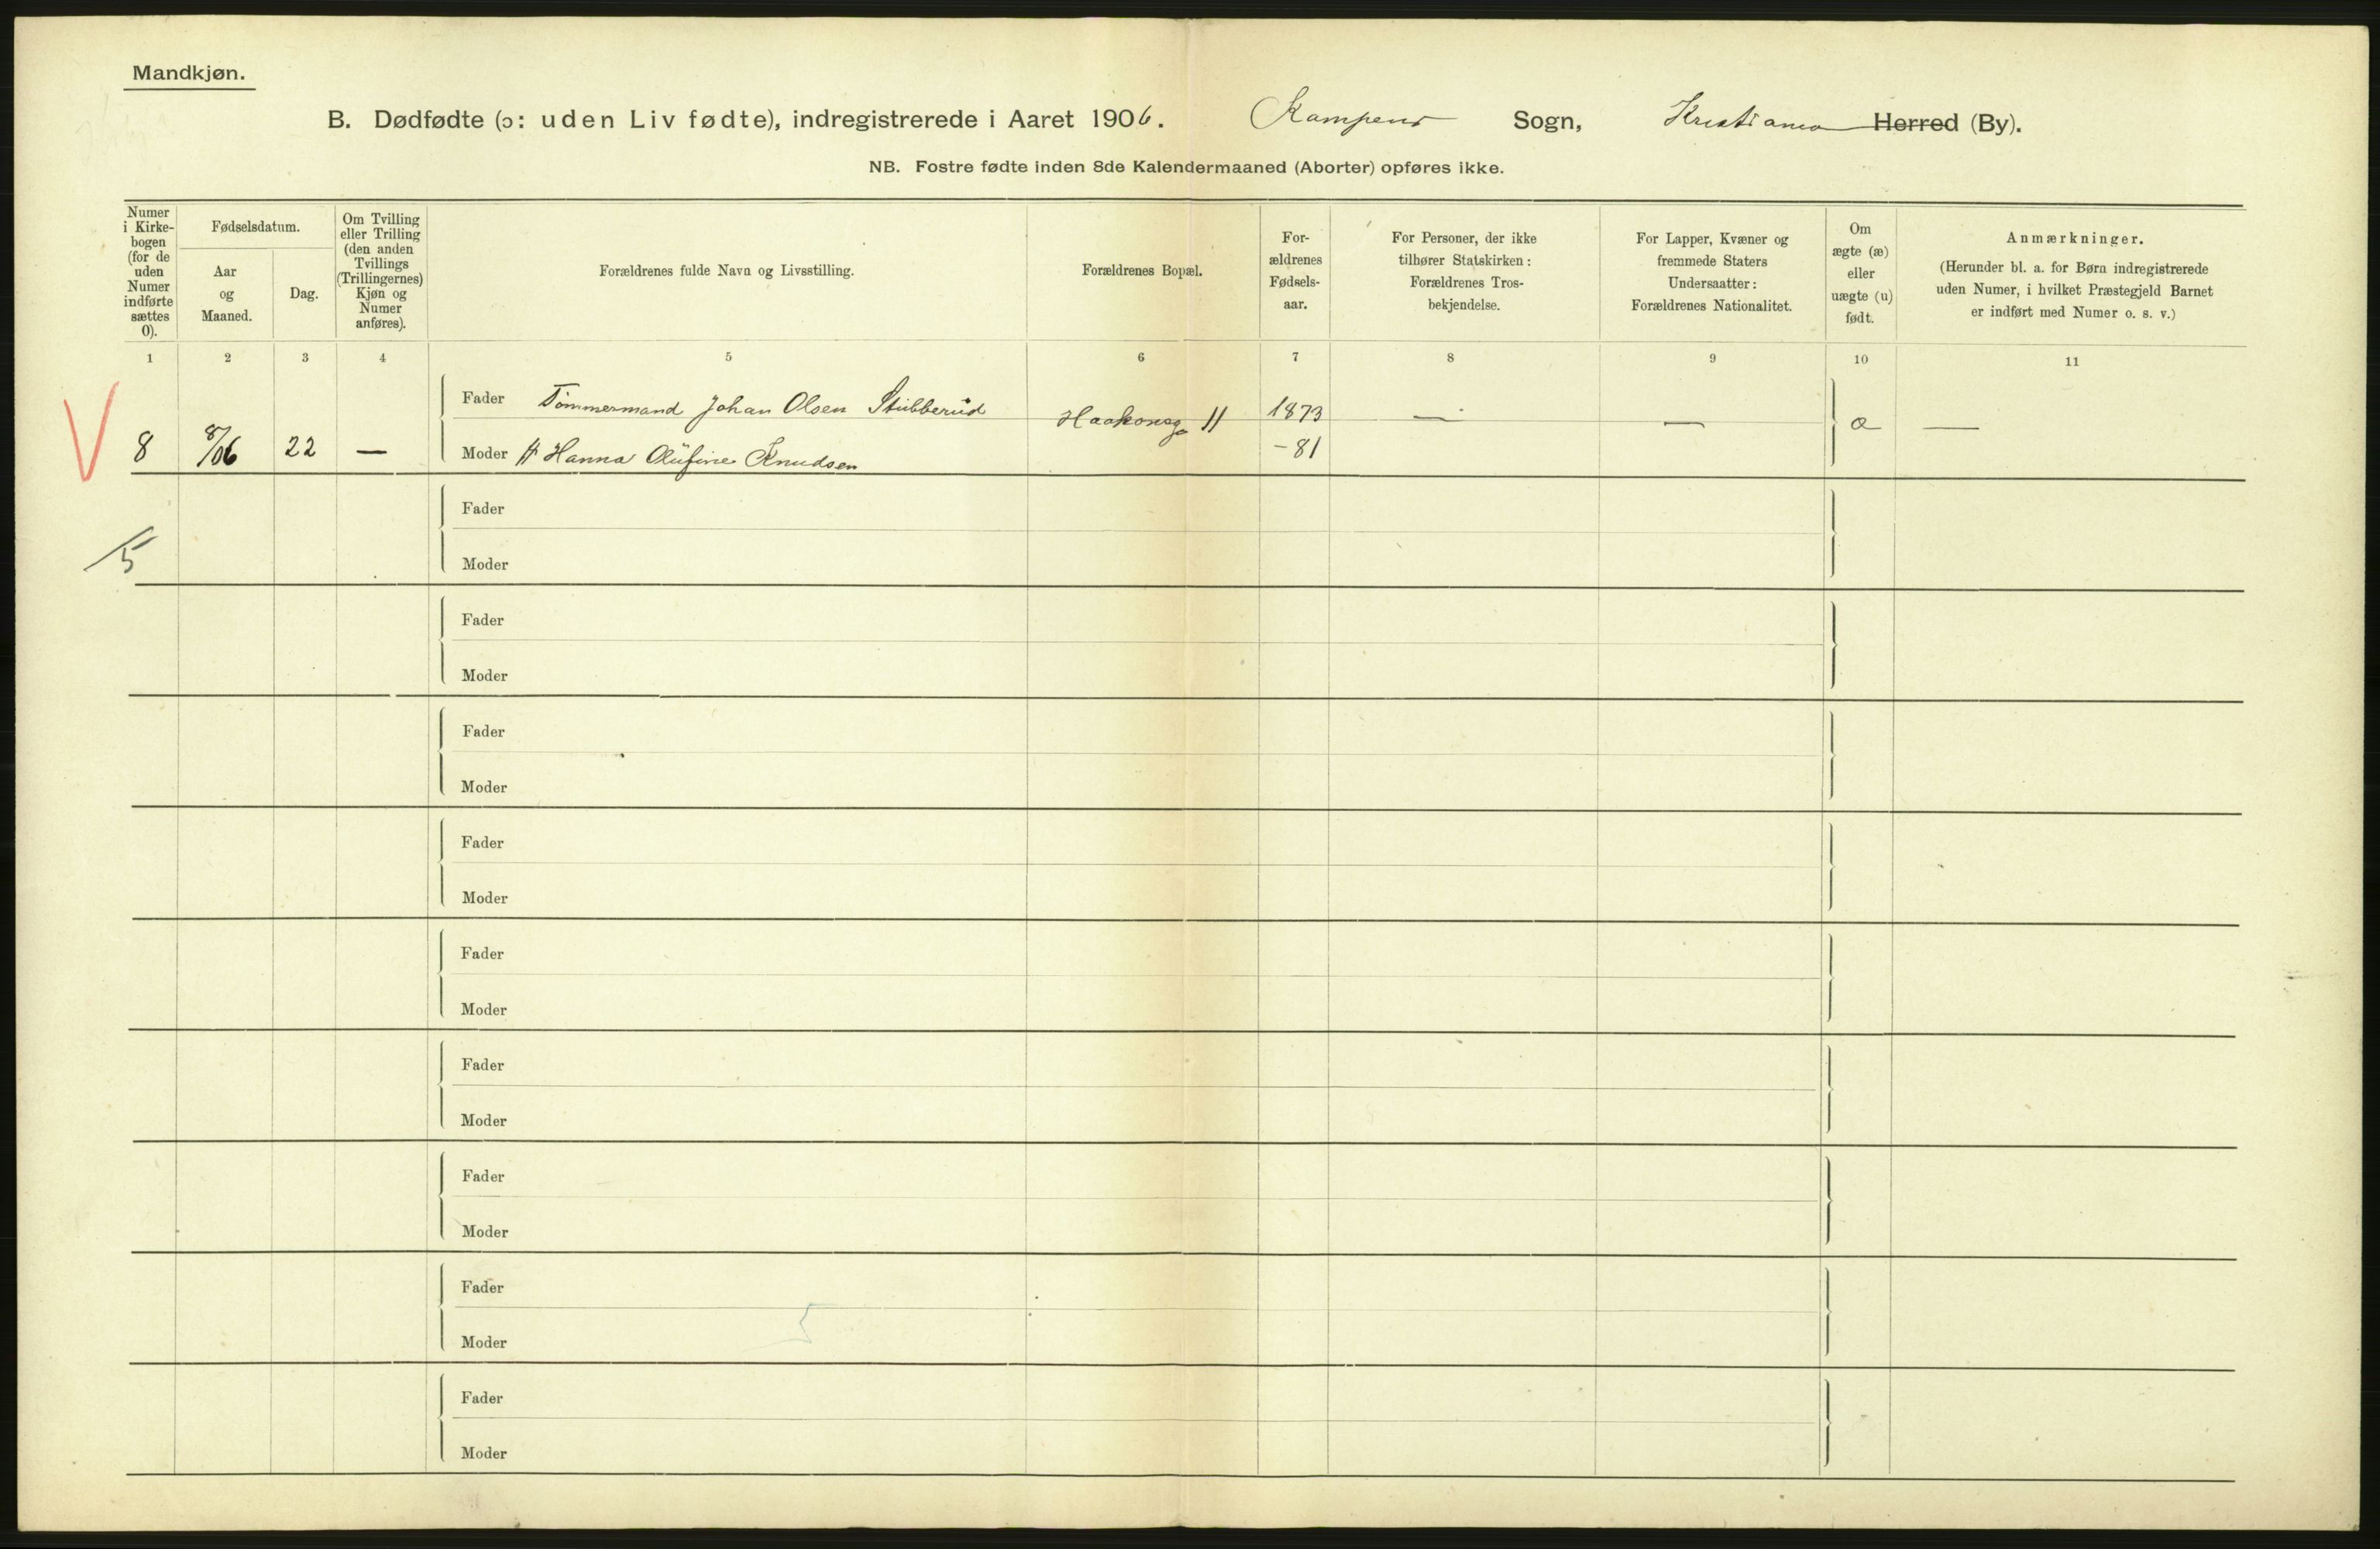 Mandkjøn.
B. Dødfødte (ɔ: uden Liv fødte), indregistrerede i Aaret 1906. Kampens Sogn, Kristiania Herred (By).
NB. Fostre fødte inden 8de Kalendermaaned (Aborter) opføres ikke.
Numer
i Kirke-
bogen
(for de
uden
Numer
indførte
sættes
0).
Fødselsdatum.
Aar
og
Maaned.
Dag.
Om Tvilling
eller Trilling
(den anden
Tvillings
(Trillingernes)
Kjøn og
Numer
anføres).
Forældrenes fulde Navn og Livsstilling.
Forældrenes Bopæl.
For-
ældrenes
Fødsels-
aar.
For Personer, der ikke
tilhører Statskirken:
Forældrenes Tros-
bekjendelse.
For Lapper, Kvæner og
fremmede Staters
Undersaatter:
Forældrenes Nationalitet.
Om
ægte (æ)
eller
uægte (u)
født.
Anmærkninger.
(Herunder bl. a. for Børn indregistrerede
uden Numer, i hvilket Præstegjeld Barnet
er indført med Numer o. s. v.)
1 2 3 4 5 6 7 8 9 10 11
Fader Tömmermand Johan Olsen Stubberud Haakonsg. 11 1873 — — æ —
8 8/06 22 — Moder Hanna Olufine Knudsen -81
Fader
5
Moder
Fader
Moder
Fader
Moder
Fader
Moder
Fader
Moder
Fader
Moder
Fader
Moder
Fader
5
Moder
Fader
Moder